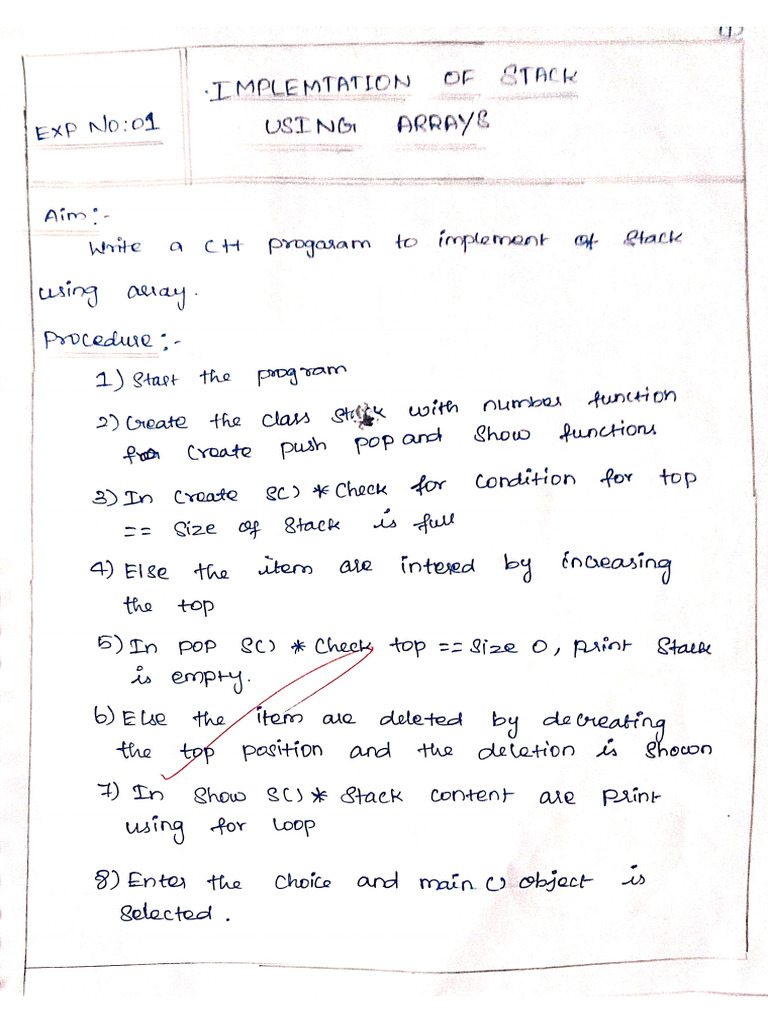 IMPLEMTATION OF STACK
EXP NO:01
USING ARRAYS
Aim:-
Write a C++ progaram to implement of stack
using array.
Procedure:-
1) Start the program
2) Create the class stack with number function
Create push pop and show functions
3) In Create SC) * Check for condition for top
== Size of stack is full
4) Else the item are intered by increasing
the top
5) In pop SC) * Check top == Size 0, print stack
is empty.
6) Else the item are deleted by decreating
the top position and the deletion is shown
7) In show SC) * stack content are print
using for loop
8) Enter the choice and main () object is
selected.